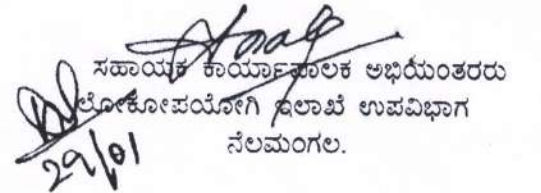 ಸಹಾಯಕ ಕಾರ್ಯಪಾಲಕ ಅಭಿಯಂತರರು
ಲೋಕೋಪಯೋಗಿ ಇಲಾಖೆ ಉಪವಿಭಾಗ
ನೆಲಮಂಗಲ.
29/01